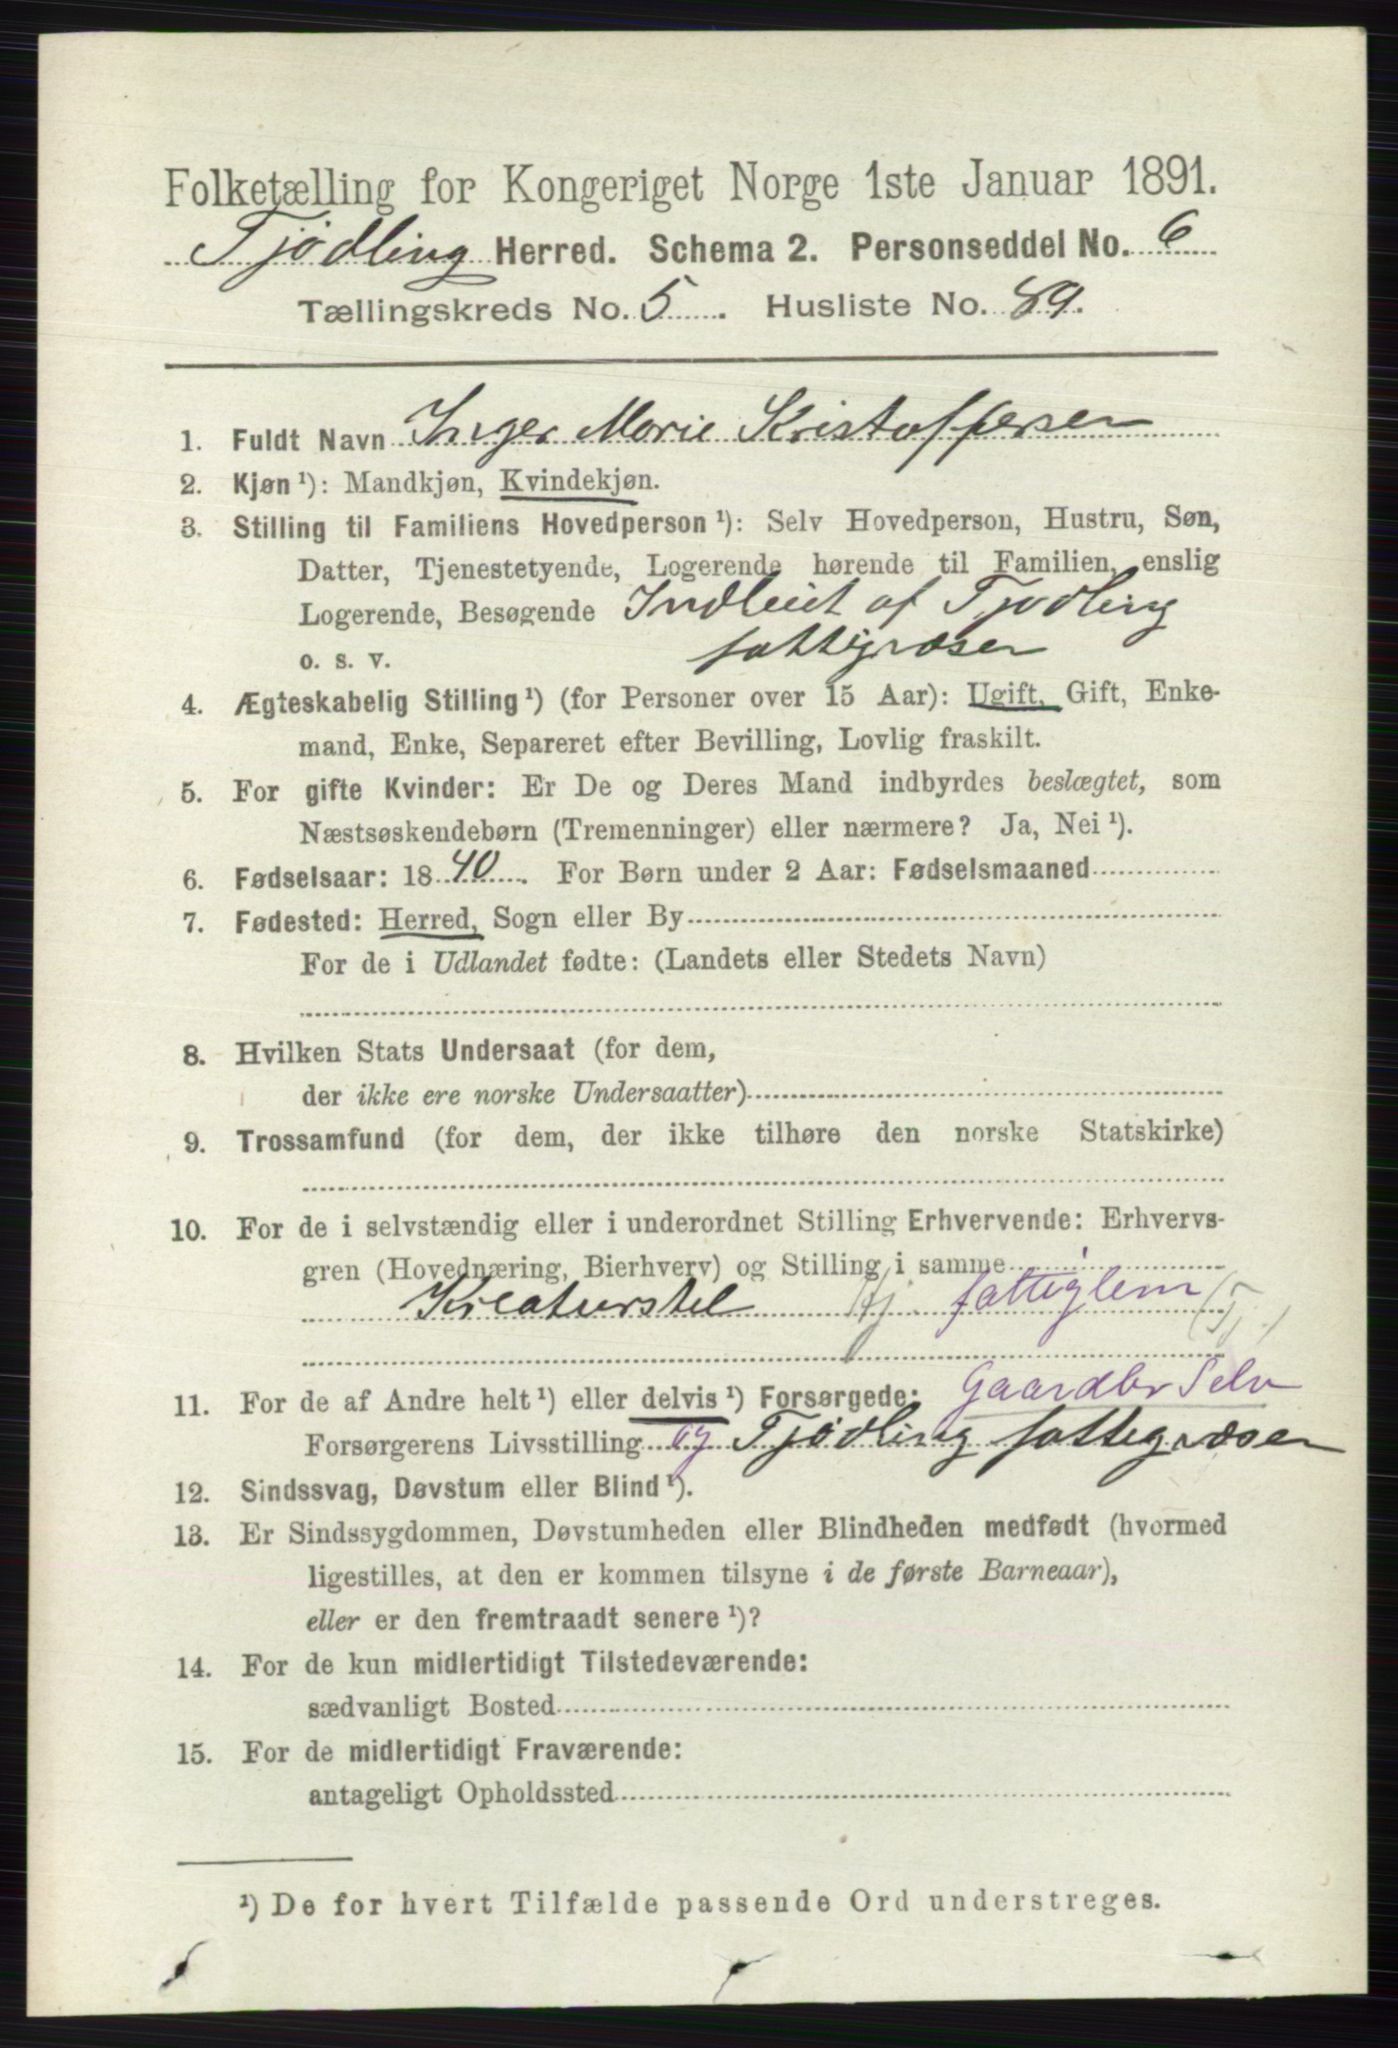 Folketælling for Kongeriget Norge 1ste Januar 1891.
Tjødling Herred. Schema 2. Personseddel No. 6
Tællingskreds No. 5. Husliste No. 89.
1. Fuldt Navn Inger Marie Kristoffersen
2. Kjøn ¹): Mandkjøn, Kvindekjøn.
3. Stilling til Familiens Hovedperson ¹): Selv Hovedperson, Hustru, Søn,
Datter, Tjenestetyende, Logerende hørende til Familien, enslig
Logerende, Besøgende Indleiet af Tjødling
o. s. v. fattigvæsen
4. Ægteskabelig Stilling ¹) (for Personer over 15 Aar): Ugift, Gift, Enke-
mand, Enke, Separeret efter Bevilling, Lovlig fraskilt.
5. For gifte Kvinder: Er De og Deres Mand indbyrdes beslægtet, som
Næstsøskendebørn (Tremenninger) eller nærmere? Ja, Nei ¹).
6. Fødselsaar: 1840. For Børn under 2 Aar: Fødselsmaaned
7. Fødested: Herred, Sogn eller By
For de i Udlandet fødte: (Landets eller Stedets Navn)
8. Hvilken Stats Undersaat (for dem,
der ikke ere norske Undersaatter)
9. Trossamfund (for dem, der ikke tilhøre den norske Statskirke)
10. For de i selvstændig eller i underordnet Stilling Erhvervende: Erhvervs-
gren (Hovednæring, Bierhverv) og Stilling i samme
Kreaturstel Hj. fattiglem (Tj.)
11. For de af Andre helt ¹) eller delvis ¹) Forsørgede: Gaardbr Selv
Forsørgerens Livsstilling og Tjødling fattigvæsen
12. Sindssvag, Døvstum eller Blind ¹).
13. Er Sindssygdommen, Døvstumheden eller Blindheden medfødt (hvormed
ligestilles, at den er kommen tilsyne i de første Barneaar),
eller er den fremtraadt senere ¹)?
14. For de kun midlertidigt Tilstedeværende:
sædvanligt Bosted
15. For de midlertidigt Fraværende:
antageligt Opholdssted
¹) De for hvert Tilfælde passende Ord understreges.